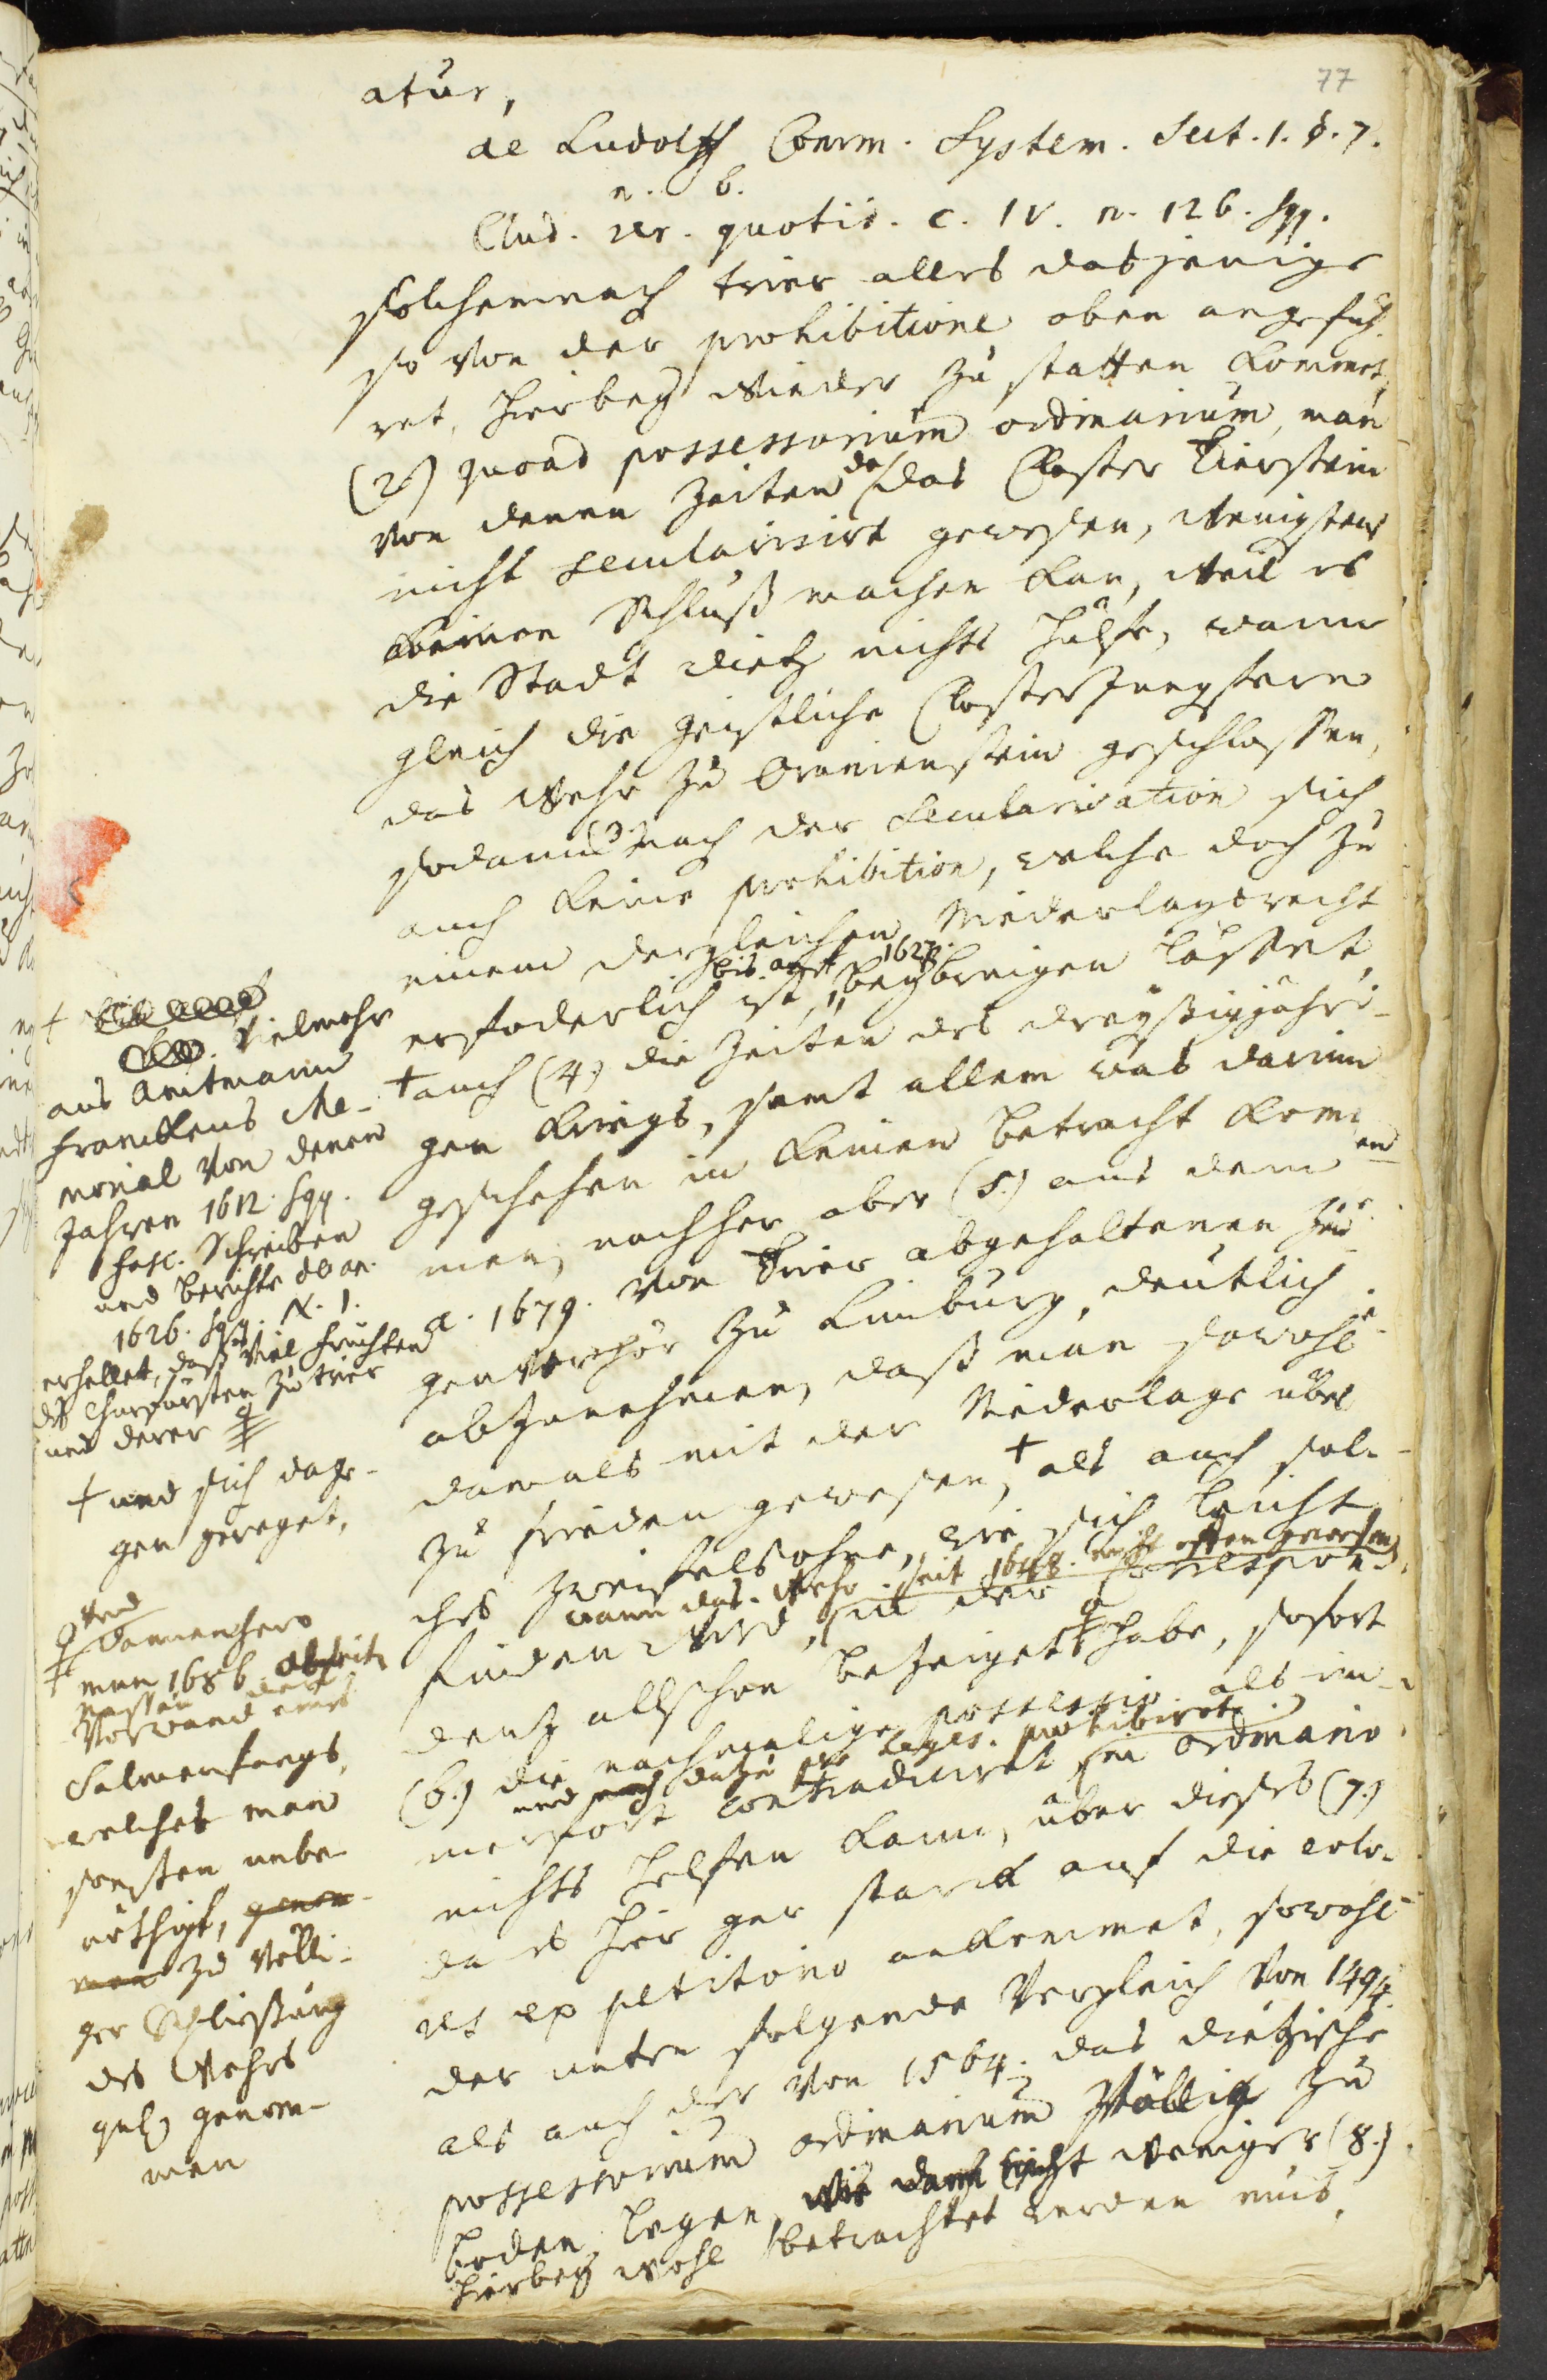 77
atur,
de Ludolff Comm. System. Sect. 1. §. 7.
n. 6.
Clud. rer. quotid. c. IV. n. 126. sqq.
solchemnach trier alles dasjenige
so von der prohibitione oben angefüh-
ret, hierbey wieder zu statten kommet,
(2.) quoad possessorium ordinarium, man
von denen Zeiten da das Closter Dierstein
nicht secularisirt gewesen, wenigstens
keinen Schluß machen kan, weil es
die Stadt Dietz nichts hülfe, wann
gleich die geistliche Closter Jungfern
das Wehr zu Oranienstein geschlossen,
sodann (3.) nach der Secularisation sich
auch keine prohibition, welche doch zu
einem dergleichen Niederlagsrecht
erfoderlich ist, bis aufs 1627. beybringen läßet,
+ auch (4.) die Zeiten des dreyßigjähri-
gen Kriegs, samt allem was darinn
geschehen in keinen betracht kom-
men, nachher aber (5.) aus dem en
a. 1679. von Trier abgehaltenen Zeu-
genverhör zu Limburg, deutlich
abzunehmen, daß man sowohl
damals mit der Niederlage übel
zu frieden gewesen, + als auch sol-
ches zweifelsohne, wie sich leicht
wann das Wehr seit 1648. nicht offen gewesen
finden wird, in der Correspon-
dentz allschon bezeiget habe, sofort
(6.) die nachmalige possessio als im-
und auch dazu per leges prohibiret
merfort contradiciret in ordinario
nichts helfen kann, über dieses (7.)
da es hier gar starck auf die colo-
res ex petitorio ankommet, sowohl
der unten folgende Vergleich von 1494.
als auch der von 1564. das dietzische
possessorium ordinarium völlig zu
boden legen, wie dann nicht weniger (8.)
hierbey wohl betrachtet werden mus,
+ Vielmehr
aus Amtmann
Franckens Me-
morial von denen
Jahren 1612. sqq.
Fasc. Schreiben
und Berichte de an.
1626. sqq. N. 1.
erhellet, daß viel früchten
des Churfürsten zu trier
und derer
+ und sich dage-
gen gereget,
und
dannenhero
man 1686. abseiten
Nassau den
Vorwand eines
Salmenfangs,
welches man
sonsten unbe-
nöthigt, genom-
men zu völli-
ger Schließung
des Wehrs
genom-
men